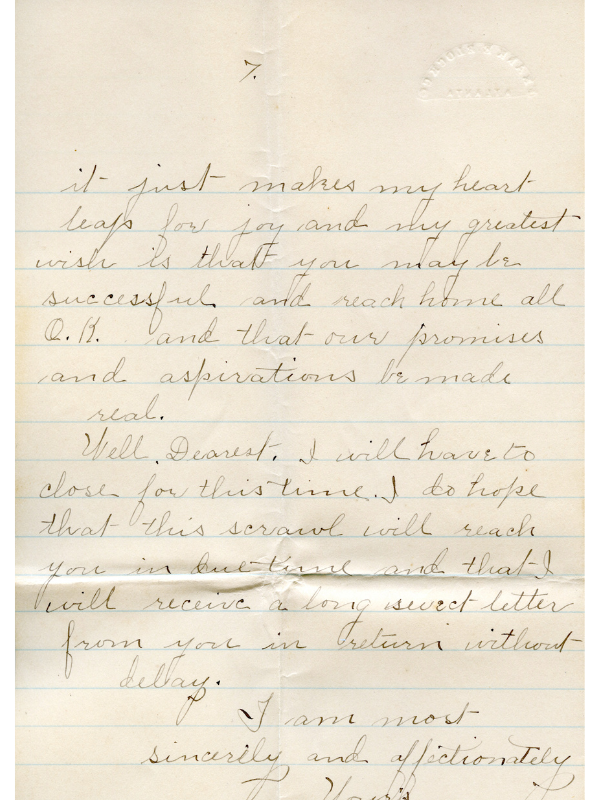 7.
it just makes my heart
leap for joy and my greatest
wish is that you may be
successful and reach home all
O.K. and that our promises
and aspirations be made
real.
Well, Dearest. I will have to
close for this time. I do hope
that this scrawl will reach
you in due time and that I
will receive a long sweet letter
from you in return without
dellay.
I am most
sincerily and affectionately
Yours